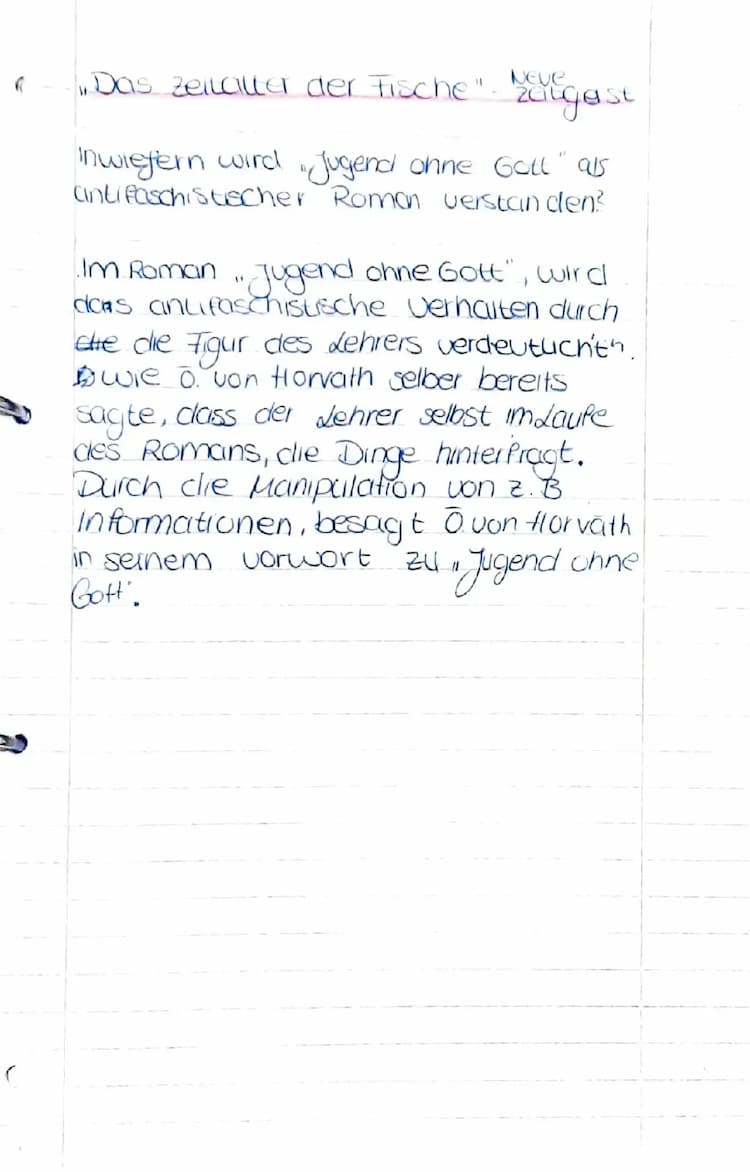 „Das Zeitalter der Fische" - Neue Zeitgeist
Inwiefern wird „Jugend ohne Gott" als
antifaschistischer Roman verstanden?
Im Roman „Jugend ohne Gott", wird
das antifaschistische Verhalten durch
die die Figur des Lehrers verdeutlicht.
wie Ö. von Horvath selber bereits
sagte, dass der Lehrer selbst im Laufe
des Romans, die Dinge hinterfragt.
Durch die Manipulation von z. B
Informationen, besagt Ö. von Horvath
in seinem Vorwort zu „Jugend ohne
Gott".